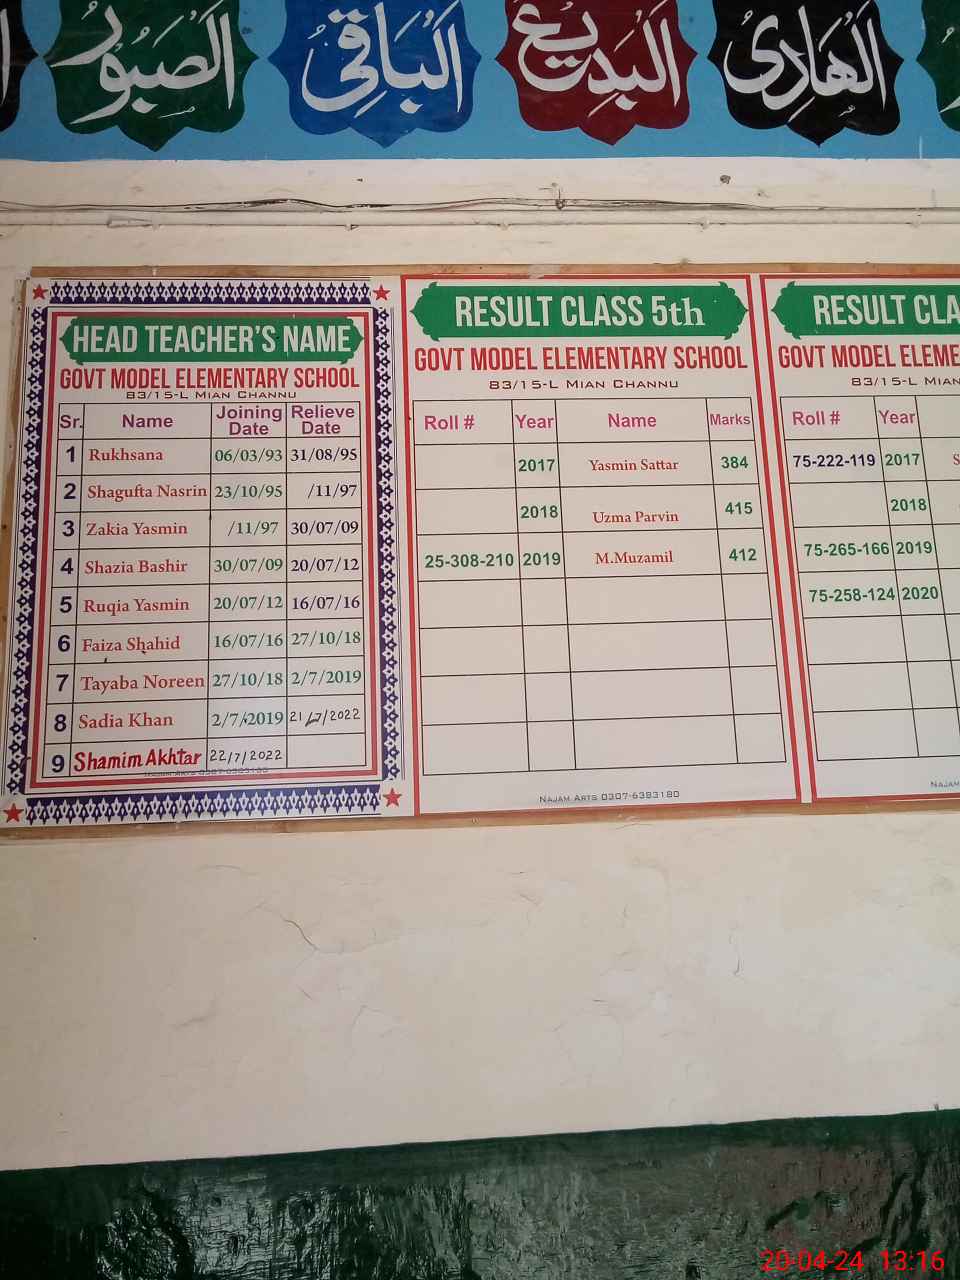 الهادی
البديع
الباقی
الصبور
HEAD TEACHER'S NAME
GOVT MODEL ELEMENTARY SCHOOL
83/15-L MIAN CHANNU
Sr. Name Joining Date Relieve Date
1 Rukhsana 06/03/93 31/08/95
2 Shagufta Nasrin 23/10/95 /11/97
3 Zakia Yasmin /11/97 30/07/09
4 Shazia Bashir 30/07/09 20/07/12
5 Ruqia Yasmin 20/07/12 16/07/16
6 Faiza Shahid 16/07/16 27/10/18
7 Tayaba Noreen 27/10/18 2/7/2019
8 Sadia Khan 2/7/2019 21/7/2022
9 Shamim Akhtar 22/7/2022
NAJAM ARTS 0307-6383180
RESULT CLASS 5th
GOVT MODEL ELEMENTARY SCHOOL
83/15-L MIAN CHANNU
Roll # Year Name Marks
2017 Yasmin Sattar 384
2018 Uzma Parvin 415
25-308-210 2019 M.Muzamil 412
NAJAM ARTS 0307-6383180
RESULT CLA
GOVT MODEL ELEME
83/15-L MIAN
Roll # Year
75-222-119 2017 S
2018
75-265-166 2019
75-258-124 2020
NAJAM
20-04-24 13:16